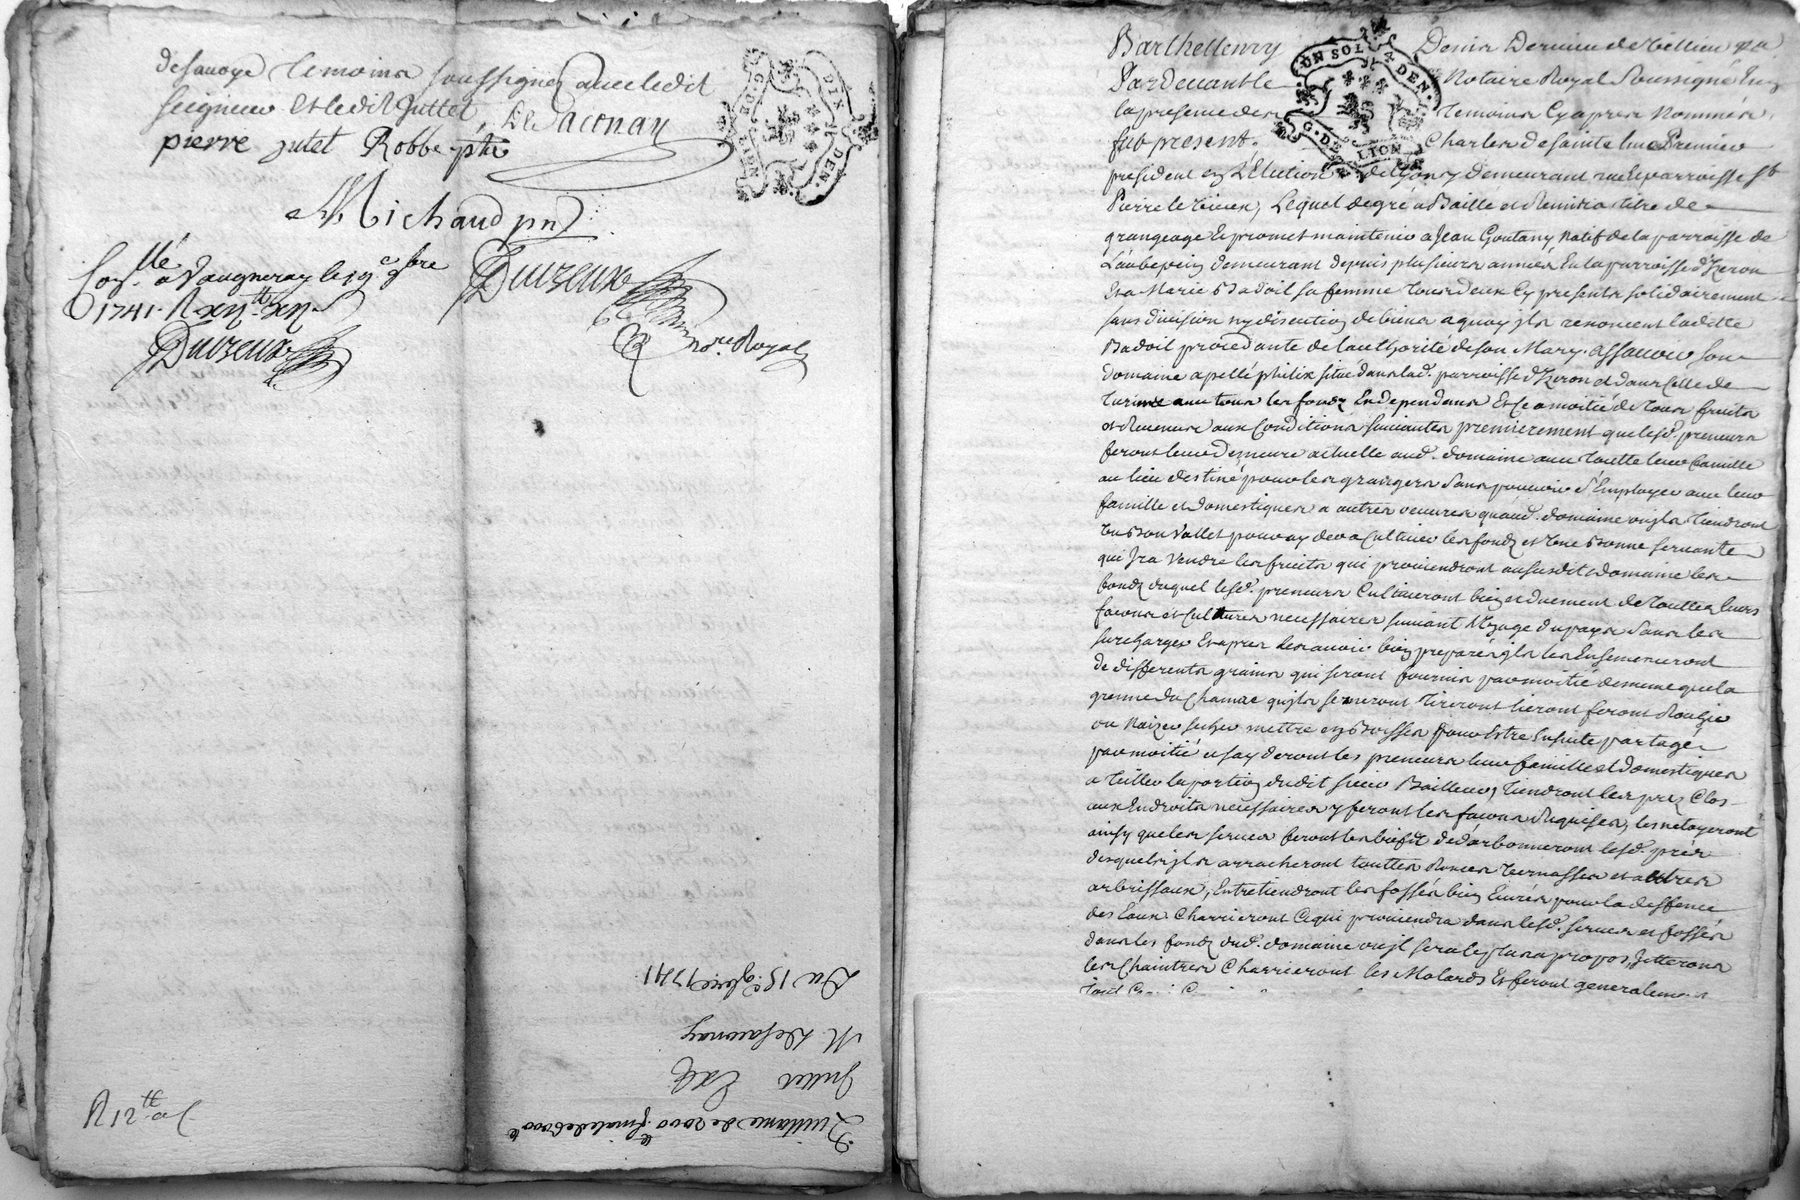 de savoye temoins soussignez avec ledit
seigneur et ledit Juttet, De Saconay
pierre jutet Robbe ptre
Michaud pn
Con.llé a Vaugneray le 19e 9bre
1741. R
Duvzeux
Duvzeux
nore Royal
G. DE LION
DIX DEN.
Du 15e 9bre 1741
M. De Saconay
Juttet
Quittance de 2000 tt finale de 6000 tt
R 12 tt
UN SOL 4 DEN.
G. DE LION
Barthellemy Denis Dernier
Pardevant le Notaire Royal Soussigné En
la presence des Temoins Cyapres Nommés
fut present. Charles de sainte luce Premier
president en L'Election de Lyon y demeurant rue et parroisse St
Pierre le vieux, Lequel de gré a Baillé et Remis a titre de
grangeage Et promet maintenir a Jean Goutany Natif de la parroisse de
Laubepein demeurant depuis plusieurs années En la parroisse d'Izeron
Et a Marie Badoil sa femme tous deux Cy presents solidairement
sans division ny discution de biens a quoy ils renoncent laditte
Badoil procedante de l'authorité de son Mary. assavoir son
domaine apellé philix situé dans lad. parroisse d'Izeron et dans celle de
Turine avec tous les fondz En dependans Et Ce a moitié de tous fruits
et Revenus aux Conditions suivantes premierement que lesd. preneurs
feront leur demeure actuelle aud. domaine avec toutte leur famille
au lieu destiné pour les grangers sans pouvoir s'Employer avec leur
famille et domestiques a autres oeuvres quaud. domaine ou ils tiendront
un Bon Vallet pour ayder a Cultiver les fondz et une Bonne servante
qui Ira Vendre les fruits qui proviendront au susdit domaine les
fondz duquel lesd. preneurs Cultiveront bien et duement de touttes leurs
façons et Cultures necessaires suivant l'Uzage du pays sans les
surcharger Et apres les avoir bien preparés ils les Ensemenceront
de differents grains qui seront fournis par moitié de meme que la
grenne du Chamac quils semeront tireront lieront feront Rouhir
ou Naizer secher mettre en Boisses pour Estre Ensuite partagé
par moitié et ayderont les preneurs leur famille et domestiques
a teiller la portion dudit sieur Bailleur, tiendront les prez Clos
aux Endroits necessaires y feront les façons Requises, les netoyeront
ainsy que les serves feront les biefs dedarbonneront lesd. prés
desquels ils arracheront touttes Ronces Vernasses et autres
arbrissaux, Entretiendront les fossés bien Curés pour la deffence
des Eaux Charrieront Ce qui proviendra dans lesd. serves et fossés
dans les fondz dud. domaine ou il sera le plus a propos, Jetterons
les Chaintres Charrieront les Molards Et feront generalement